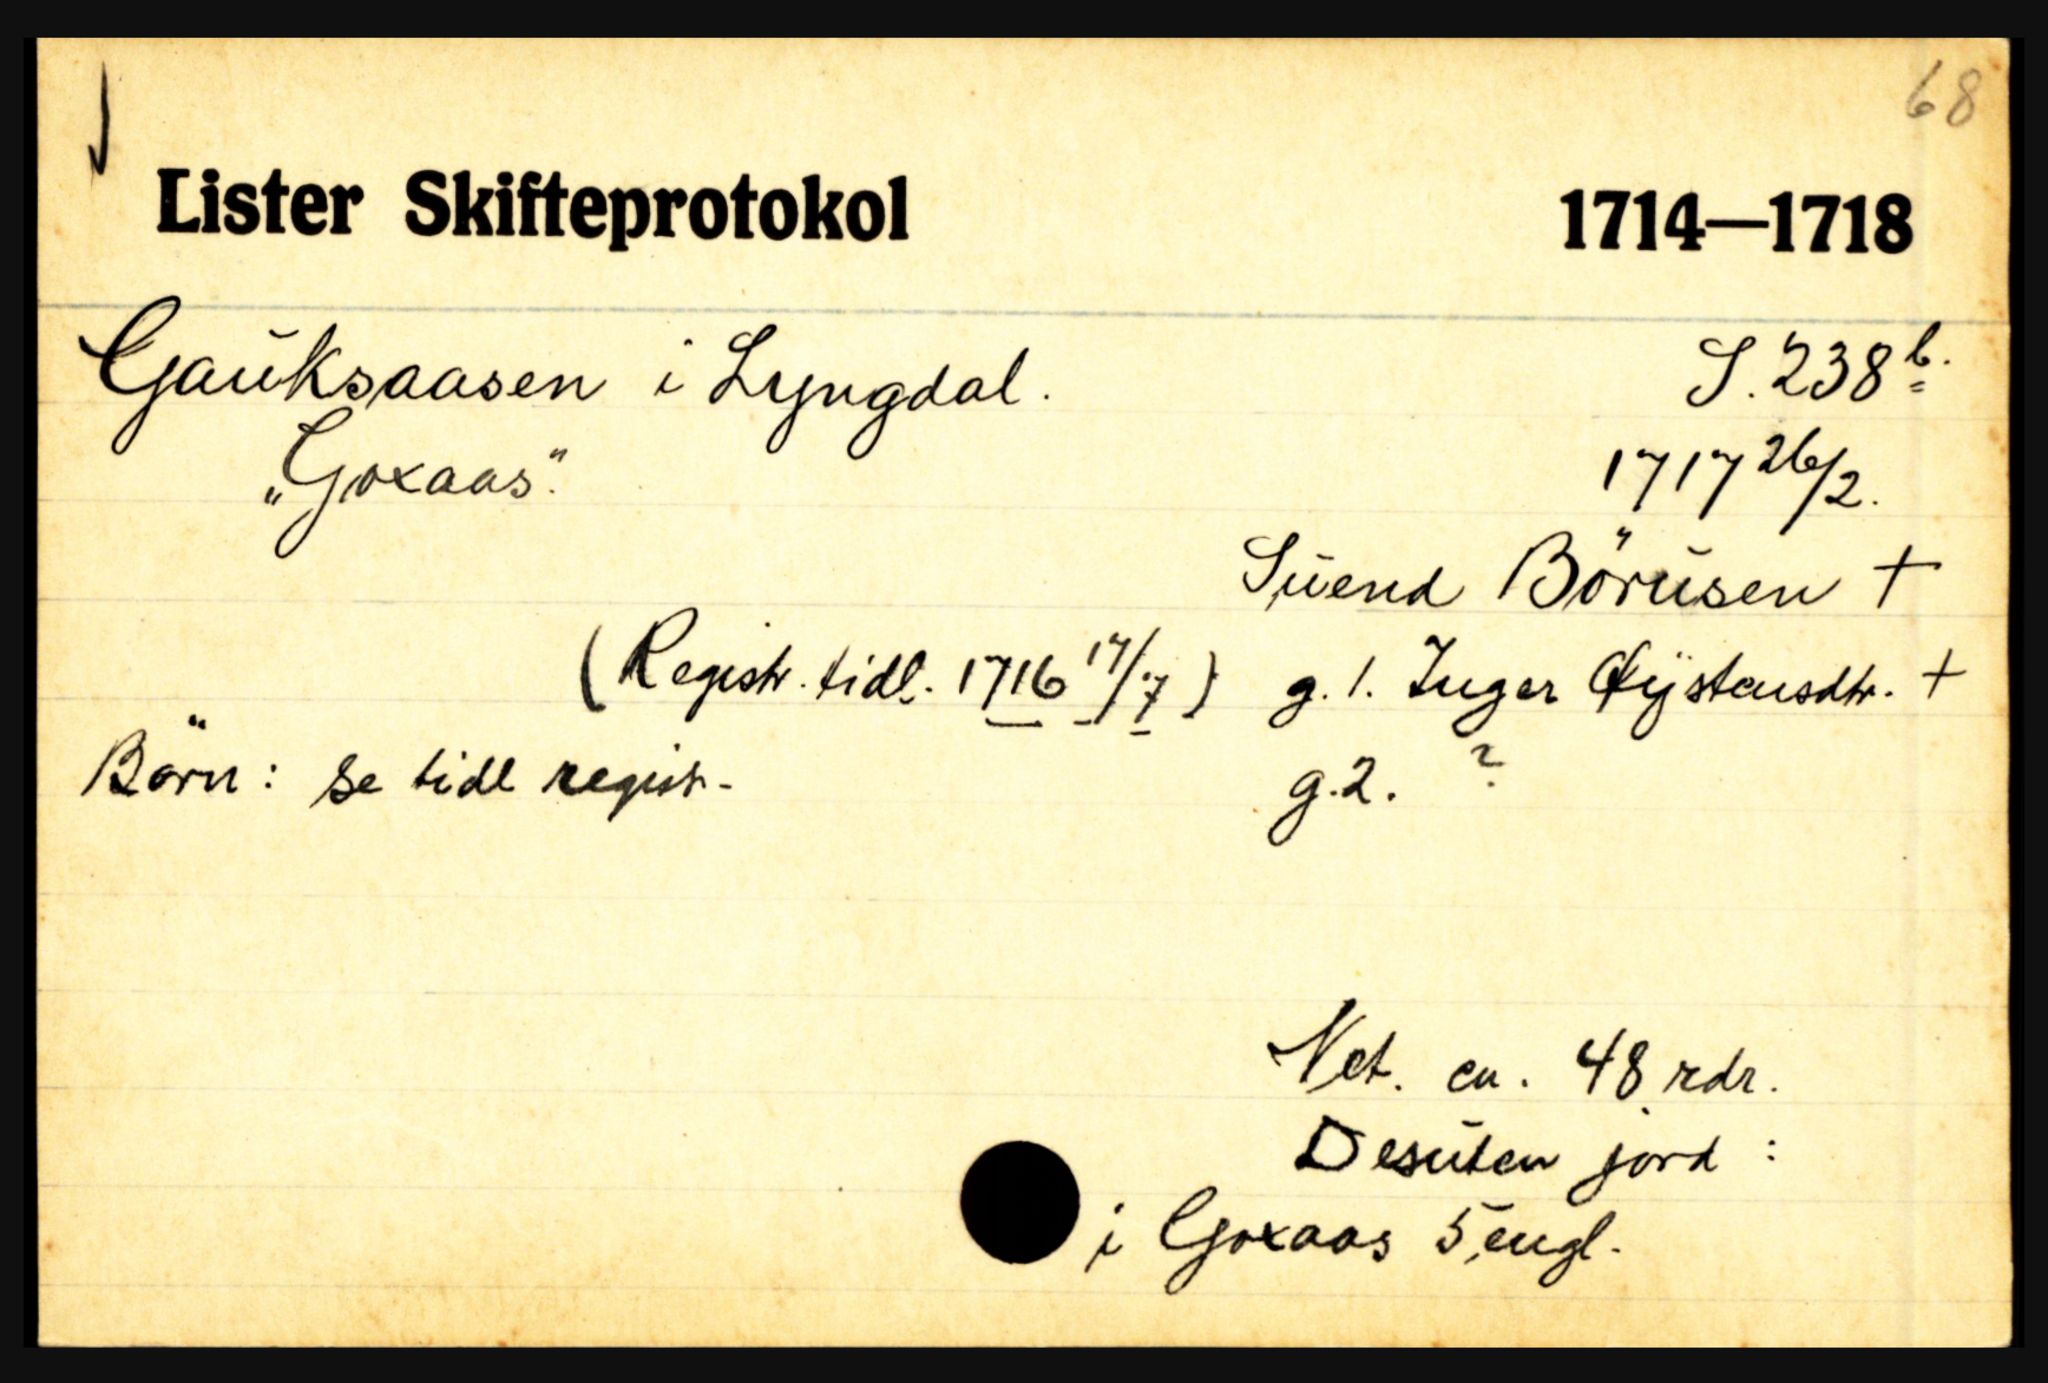 68
Lister Skifteprotokol 1714—1718
Gauksaasen i Lyngdal. S. 238 b.
„Goxaas". 1717 26/2.
Suend Börusen +
(Registr. tidl. 1716 17/7) g. 1. Inger Øÿstensdtr. +
Börn: se tidl registr. g. 2. ?
Net. ca. 48 rdr.
Desuten jord :
i Goxaas 5 engl.